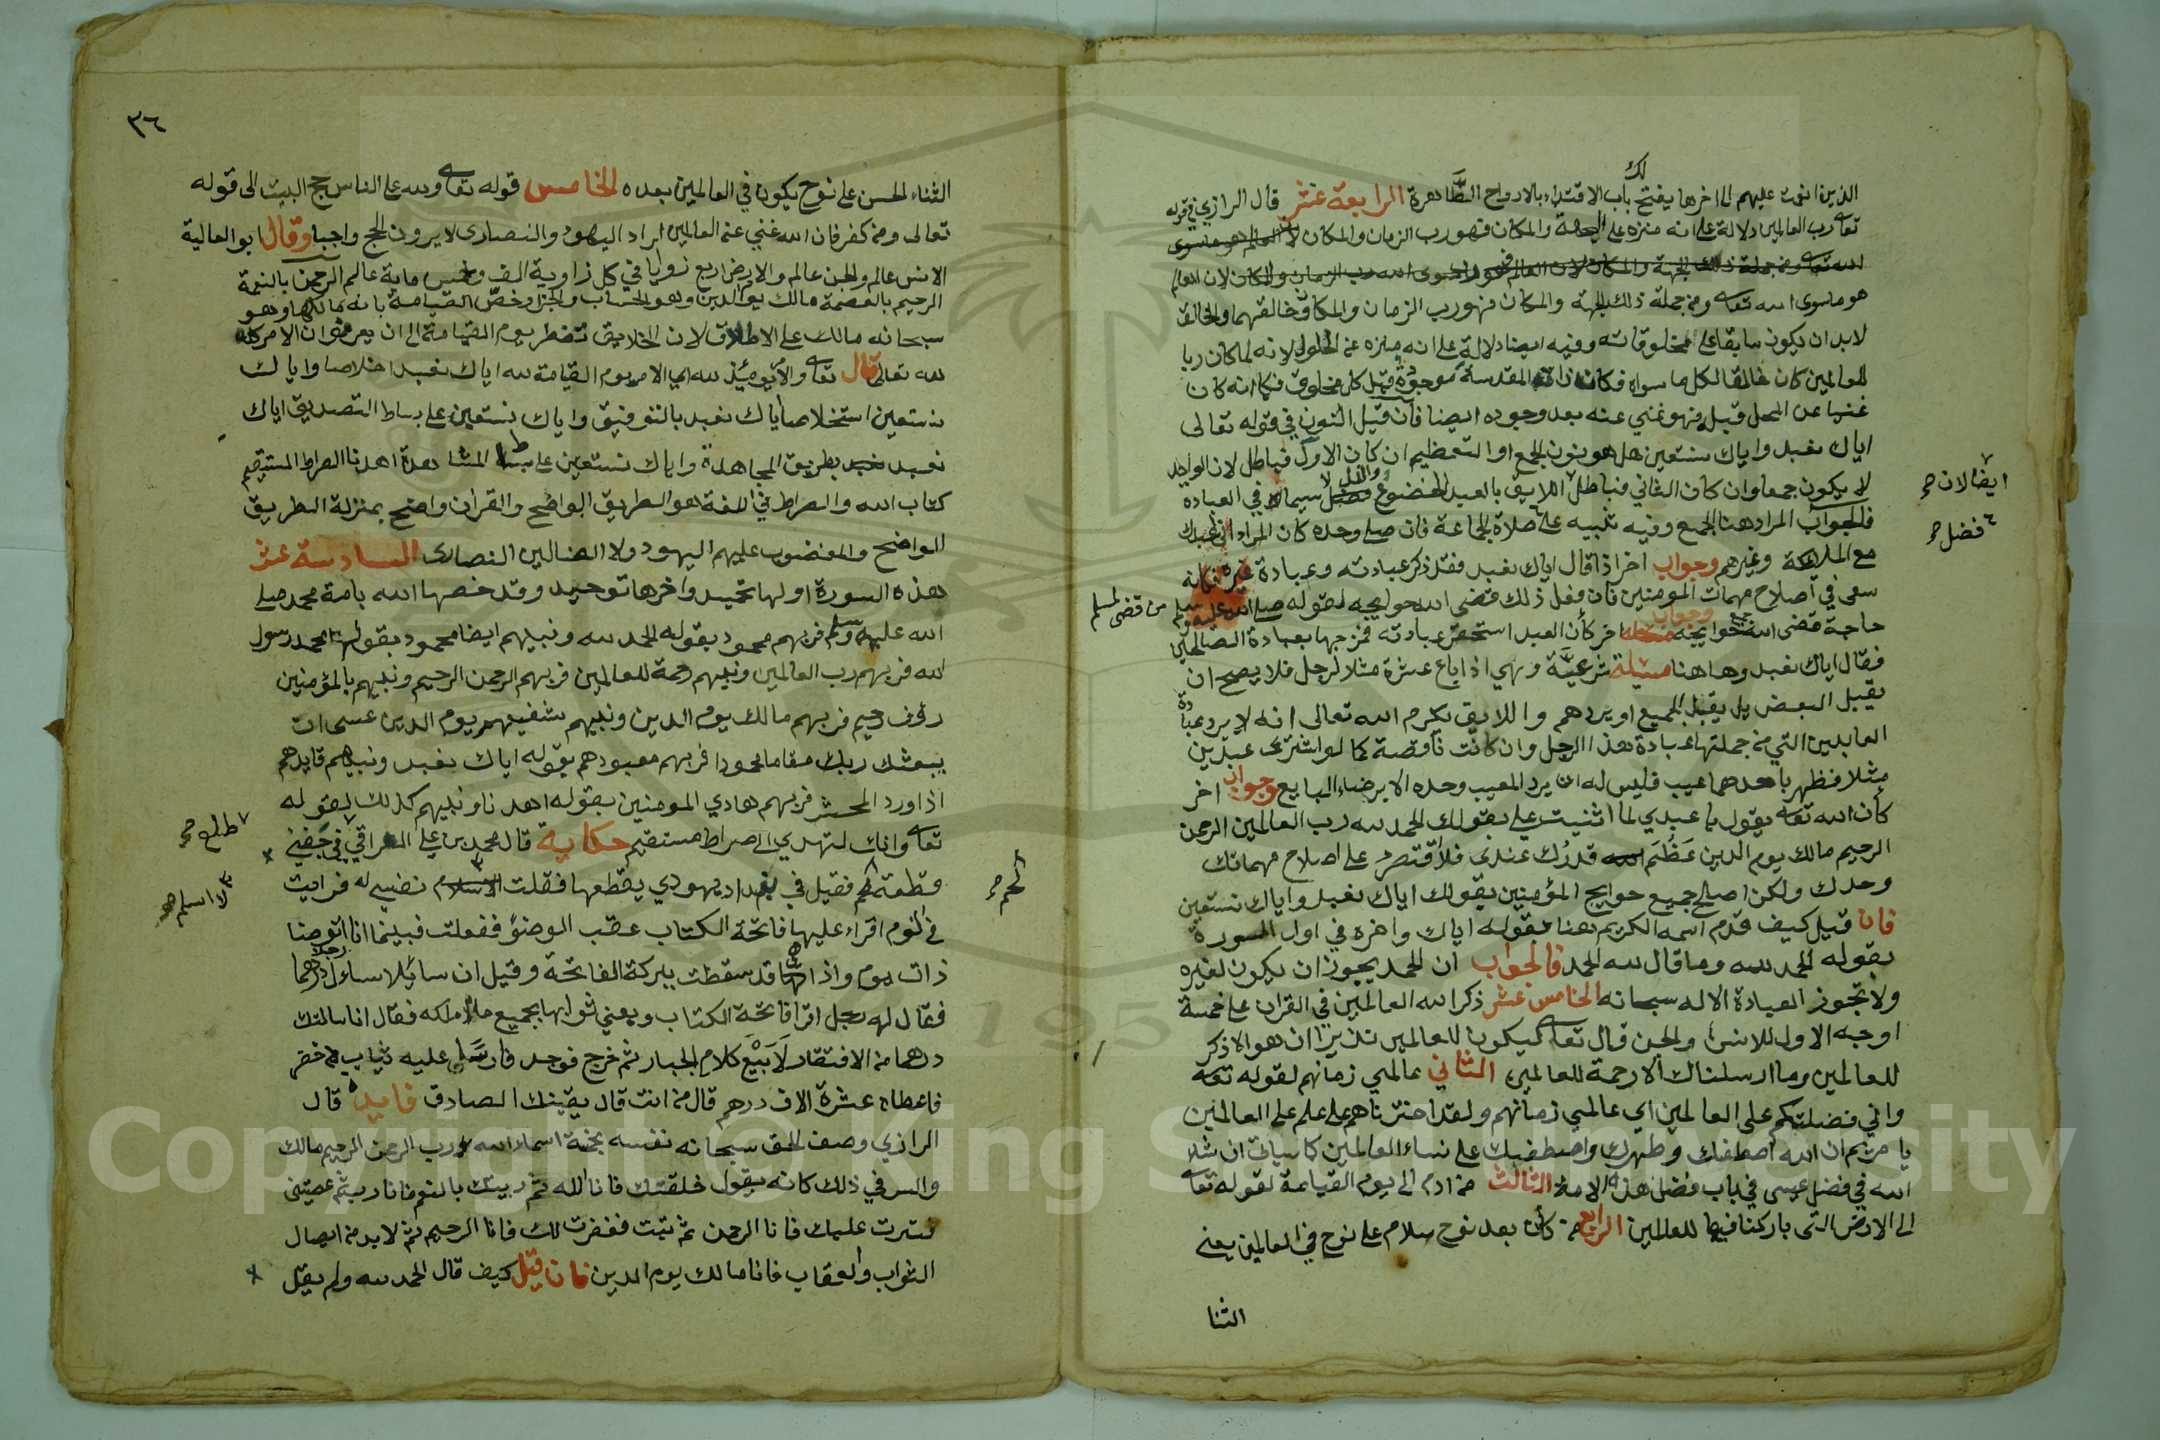 لك
الذين انعمت عليهم الى اخرها يفتح باب الاقتداء بالارواح الطاهرة الرابعة عشر قال الرازي في قوله
تعالى رب العالمين دلالة على انه منزه على الجهة والمكان فهو رب الزمان والمكان لان العالم هو ما سوى
الله تعالى ومن جملة ذلك الجهة والمكان لان العالم
هو ما سوى الله تعالى ومن جملة ذلك الجهة والمكان فهو رب الزمان والمكان وخالقهما والخالق
لابد ان يكون سابقا على مخلوقاته وفيه ايضا دلالة على انه منزه عن الحلول لانه لما كان ربا
للعالمين كان خالقا لكل ما سواه فكانت ذاته المقدسة موجودة قبل كل مخلوق فكما انه كان
غنيا عن المحل قبل فهو غني عنه بعد وجوده ايضا فان قيل النون في قوله تعالى
اياك نعبد واياك نستعين هل هو نون الجمع او التعظيم ان كان الاول فباطل لان الواحد
لا يكون جمعا وان كان الثاني فباطل اللايق بالعبد الخضوع والذل لا سيما في العبادة
ايضا لان صح
فالجواب المراد هنا الجمع وفيه تنبيه على صلاة الجماعة فان صلى وحده كان المراد اني اعبدك
فضل صح
مع الملائكة وغيرهم وجواب اخر اذا قال اياك نعبد فقد ذكر عبادته وعبادة غيره فكانه
سعى في اصلاح مهمات المومنين فان فعل ذلك قضى الله حوايجه لقوله صلى الله عليه وسلم من قضى لمسلم
حاجة قضى الله جميع حوايجه وجواب اخر كأن العبد استحقر عبادته فمزجها بعبادة الصالحين
فقال اياك نعبد وهاهنا مسئلة شرعية وهي اذا باع عشرة مثلا لرجل فلا يصح ان
يقبل البعض بل يقبل الجميع او يردهم واللايق بكرم الله تعالى انه لا يرد عبادة
العابدين التي من جملتها عبادة هذا الرجل وان كانت ناقصة كما لو اشترى عبدين
مثلا فظهر باحدهما عيب فليس له ان يرد المعيب وحده الا برضاء البايع وجواب اخر
كأن الله تعالى يقول يا عبدي لما اثنيت علي بقولك الحمد لله رب العالمين الرحمن
الرحيم مالك يوم الدين عظم قدرك عندي فلا تقتصر على اصلاح مهماتك
وحدك ولكن اصلح جميع حوايج المؤمنين بقولك اياك نعبد واياك نستعين
فان قيل كيف قدم اسمه الكريم هنا بقوله اياك واخره في اول السورة
بقوله الحمد لله وما قال لله الحمد فالجواب ان الحمد يجوز ان يكون لغيره
ولا تجوز العبادة الا له سبحانه الخامس عشر ذكر الله العالمين في القران على خمسة
اوجه الاول للانس والجن قال تعالى ليكون للعالمين نذيرا ان هو الا ذكر
للعالمين وما ارسلناك الا رحمة للعالمين الثاني عالمي زمانهم لقوله تعالى
واني فضلتكم على العالمين اي عالمي زمانهم ولقد اخترناهم على علم على العالمين
يا مريم ان الله اصطفاك وطهرك واصطفيك على نساء العالمين كما سياتي ان شاء
الله في فضل عيسى في باب فضل هذه الامة الثالث من ادم الى يوم القيامة لقوله تعالى
الى الارض التي باركنا فيها للعالمين الرابع من كان بعد نوح سلام على نوح في العالمين يعني
الثنا
٣٦
الثناء الحسن على نوح يكون في العالمين بعده الخامس قوله تعالى ولله على الناس حج البيت الى قوله
تعالى ومن كفر فان الله غني عن العالمين اراد اليهود والنصارى لا يرون الحج واجبا وقال ابو العالية
الانس عالم والجن عالم والارض اربع زوايا في كل زاوية الف وخمس ماية عالم الرحمن بالنعمة
الرحيم بالعصمة مالك يوم الدين وهو الحساب والجزا وخص القيامة بانه مالكها وهو
سبحانه مالك على الاطلاق لان الخلايق تضطر يوم القيامة الى ان يعرفوا ان الامر كله
لله تعالى قال تعالى والامر يومئذ لله اي الامر يوم القيامة لله اياك نعبد اخلاصا واياك
نستعين استخلاصا اياك نعبد بالتوفيق واياك نستعين على بساط التصديق اياك
نعبد بطريق المجاهدة واياك نستعين على بساط المشاهدة اهدنا الصراط المستقيم
كتاب الله والصراط في اللغة هو الطريق الواضح والقران واضح بمنزلة الطريق
الواضح والمغضوب عليهم اليهود ولا الضالين النصارى السادسة عشر
هذه السورة اولها تحميد واخرها توحيد وقد خصها الله بامة محمد صلى
الله عليه وسلم فربهم محمود بقوله الحمد لله ونبيهم ايضا محمود بقوله محمد رسول
الله فربهم رب العالمين ونبيهم رحمة للعالمين فربهم الرحمن الرحيم ونبيهم بالمؤمنين
رؤف رحيم فربهم مالك يوم الدين ونبيهم شفيعهم يوم الدين عسى ان
يبعثك ربك مقاما محمودا فربهم معبودهم بقوله اياك نعبد ونبيهم قايدهم
اذا ورد المحشر فربهم هادي المومنين بقوله اهدنا ونبيهم كذلك لقوله
تعالى وانك لتهدي الى صراط مستقيم حكاية قال محمد بن علي العراقي في جفني
طلع صح
قطعة لحم فقيل في بغداد يهودي يقطعها فقلت الاسلام نفسي له فرايت
لا اسلم صح
لحم صح
في النوم اقراء عليها فاتحة الكتاب عقب الوضوء ففعلت فبينما انا اتوضا
ذات يوم واذا بها قد سقطت ببركة الفاتحة وقيل ان سائلا سال رجلا درهما
فقال له رجل اقرا فاتحة الكتاب وبعني ثوابها بجميع ملكه فقال انا سالتك
درهما من الافتقار لا بيع كلام الجبار ثم خرج فوجد فارسا عليه ثياب خضر
فاعطاه عشرة الاف درهم قال من انت قال يقينك الصادق فايدة قال
الرازي وصف الحق سبحانه نفسه بخمسة اسماء الله ورب الرحمن الرحيم مالك
والسر في ذلك كانه يقول خلقتك فانا الله ثم ربيتك بالنعم فانا رب ثم عصيتني
فسترت عليك فانا الرحمن ثم تبت فغفرت لك فانا الرحيم ثم لابد من ايصال
الثواب والعقاب فانا مالك يوم الدين فان قيل كيف قال الحمد لله ولم يقل
Copyright © King Saud University
195